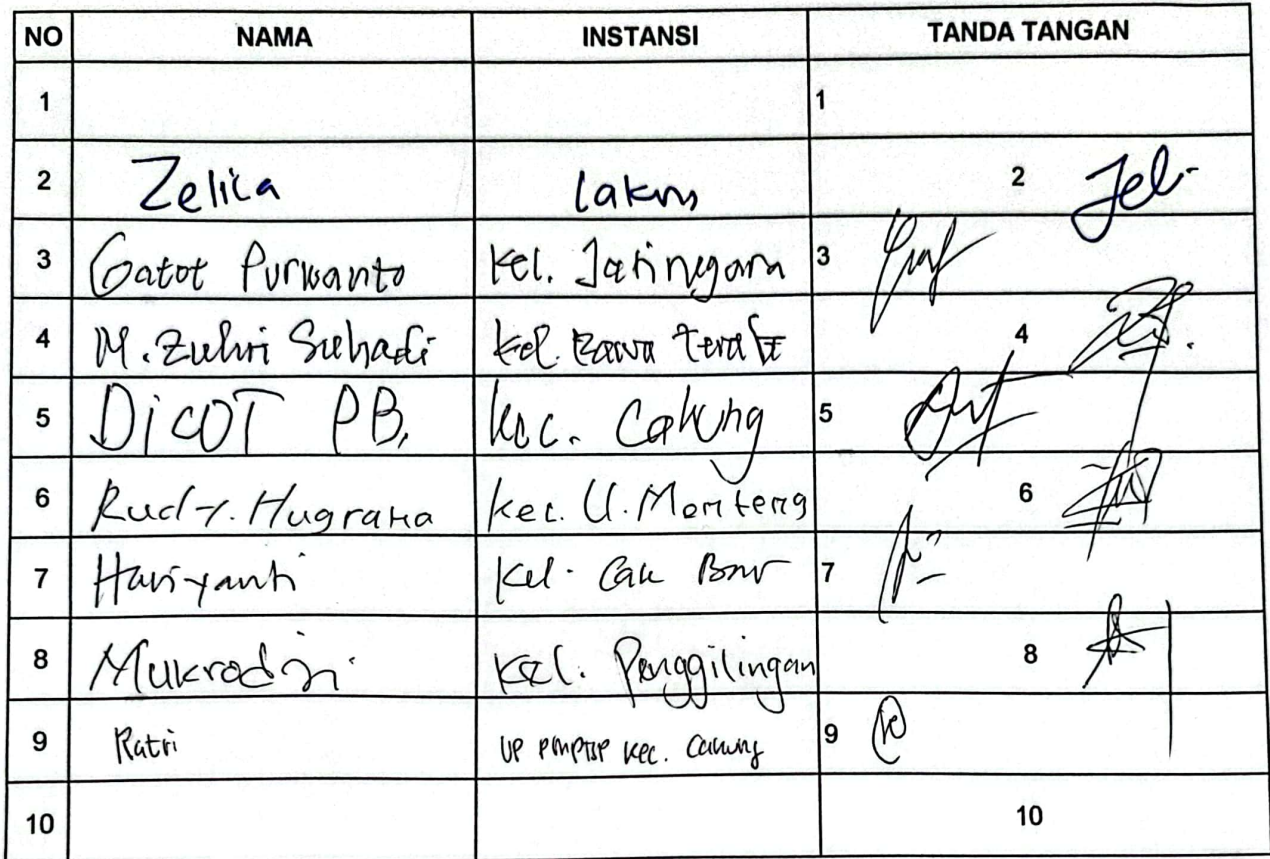 NO NAMA INSTANSI TANDA TANGAN
1 1
2 Zelica 2
3 Gatot Purwanto Kel. Jatinegara 3
4 M. Zuhri Suhadi Kel. Rawa 4
5 DiCOT PB. Kec. Cakung 5
6 Rudy. Hugraha Kec. U. Menteng 6
7 Hariyanti Kel. Cak 7
8 Mukrodin Kel. Penggilingan 8
9 Ratri UP PMPTSP Kec. Cakung 9
10 10